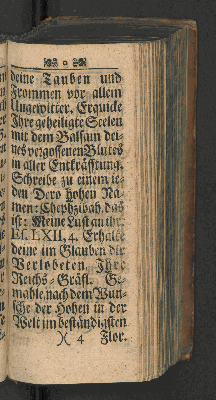 deine Tauben und
Frommen vor allem
Ungewitter. Erquicke
Ihre geheiligte Seelen
mit dem Balsam dei-
nes vergossenen Blutes
in aller Entkräfftung.
Schreibe zu einem ie-
den Dero hohen Na-
men: Chephzibah, das
ist: Meine Lust an ihr.
Ef. LXII, 4. Erhalte
deine im Glauben dir
Verlobeten, Ihre
Reichs-Gräfl. Ge-
mahle, nach dem Wun-
sche der Hohen in der
Welt im beständigsten
)( 4 Flor.